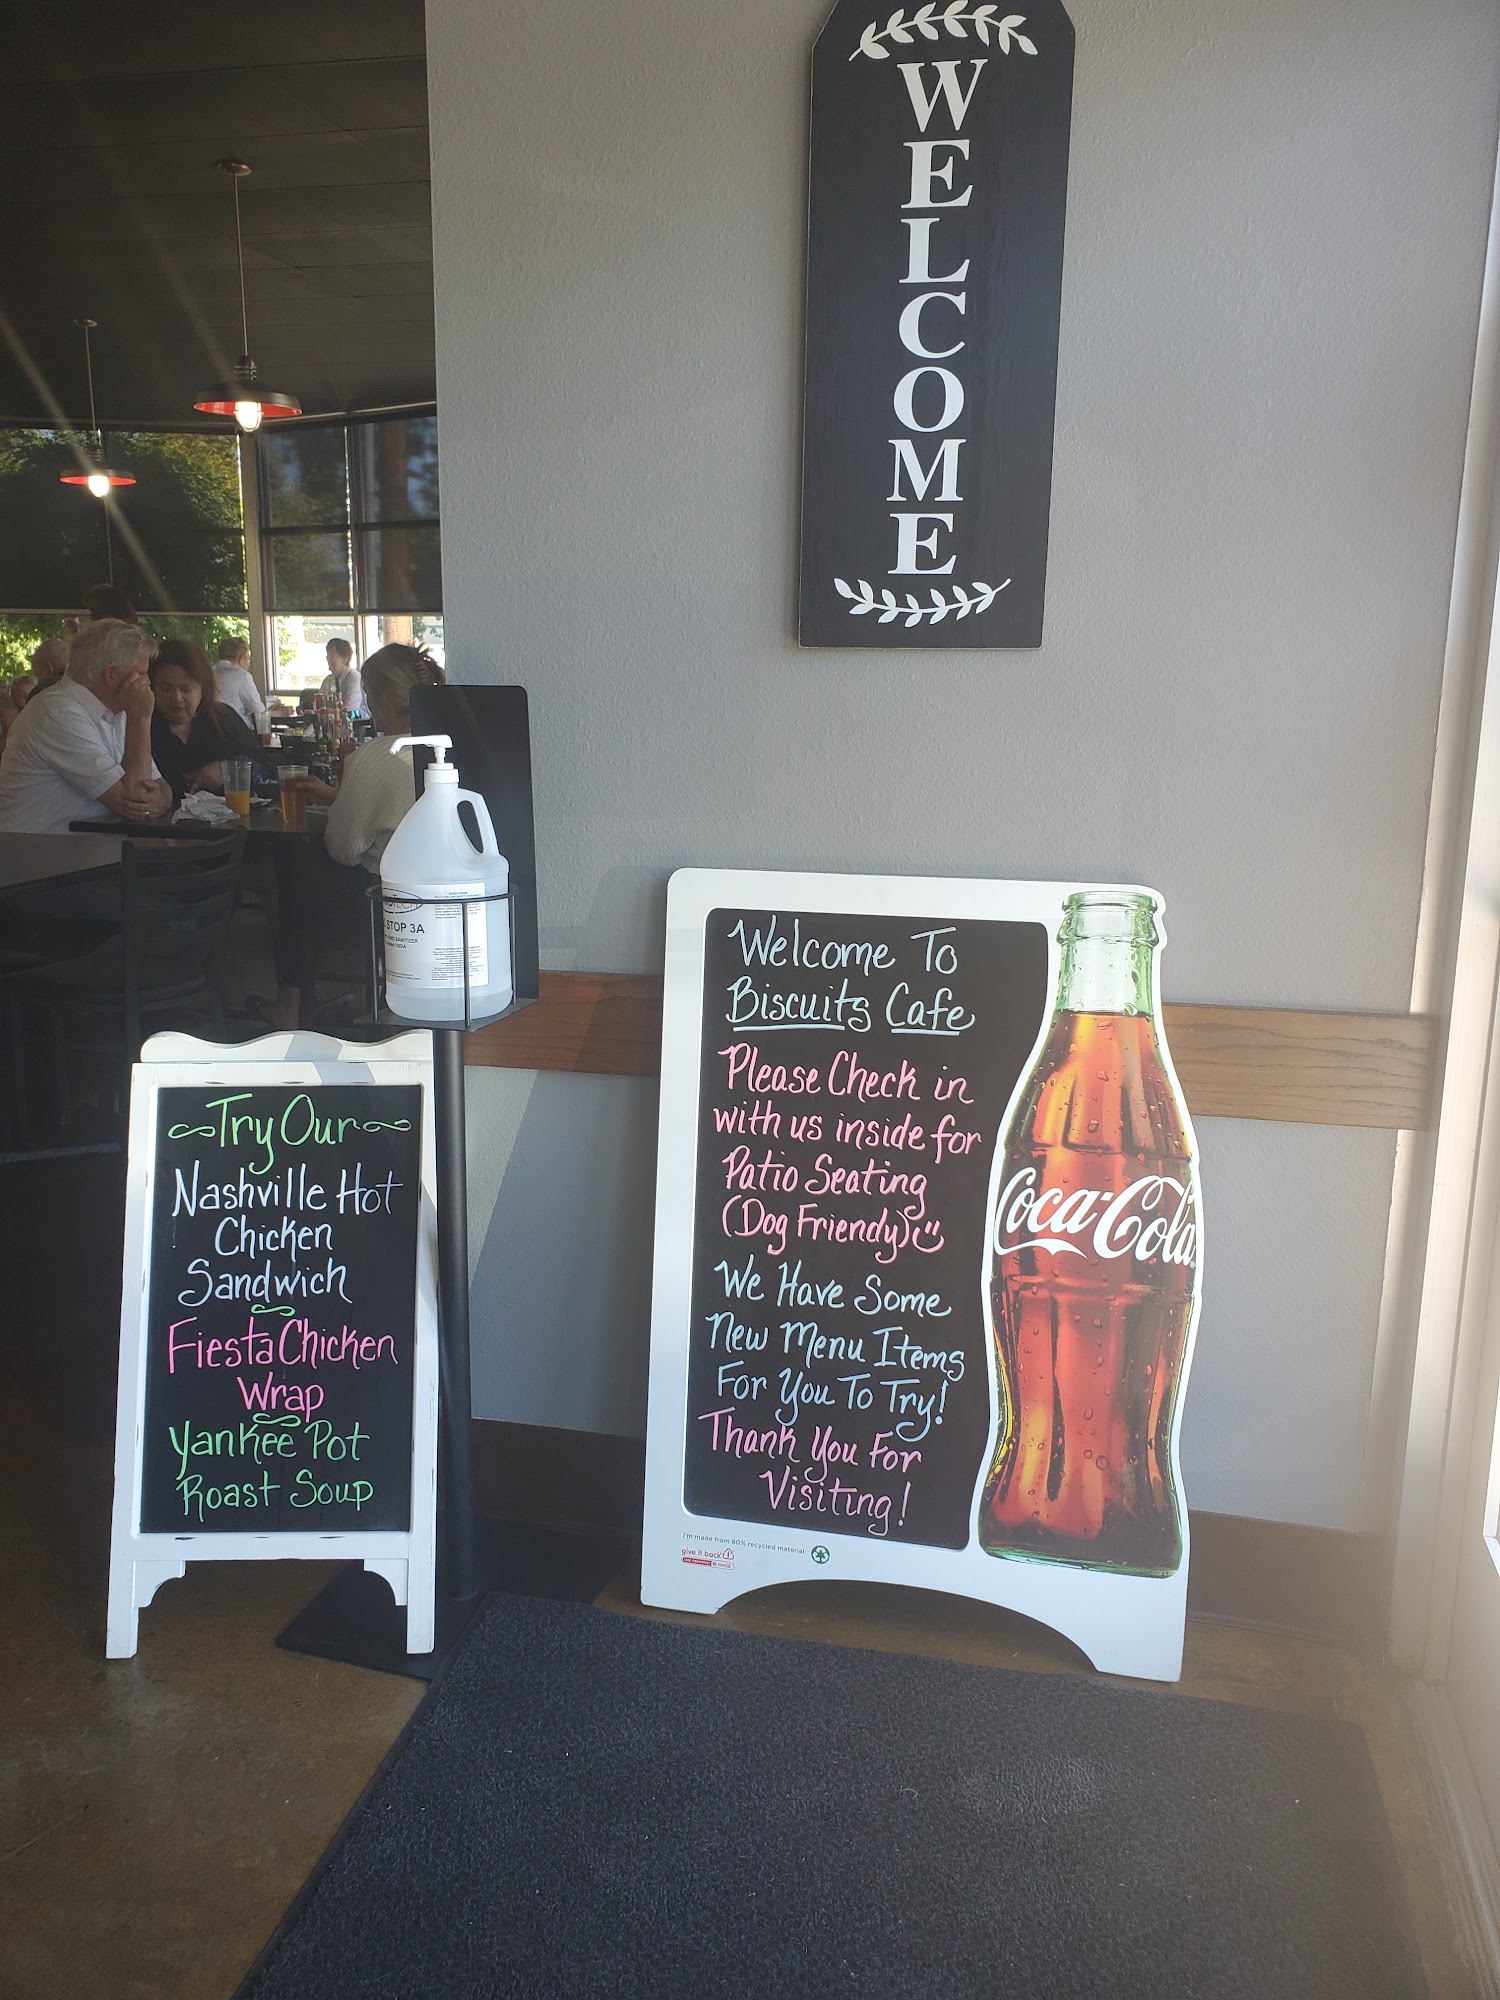 WELCOME
STOP 3A
Try Our
Nashville Hot
Chicken
Sandwich
Fiesta Chicken
Wrap
Yankee Pot
Roast Soup
Welcome To
Biscuits Cafe
Please Check in
with us inside for
Patio Seating
(Dog Friendy)
We Have Some
New Menu Items
For You To Try!
Thank You For
Visiting!
Coca-Cola
I'm made from 80% recycled material
give it back